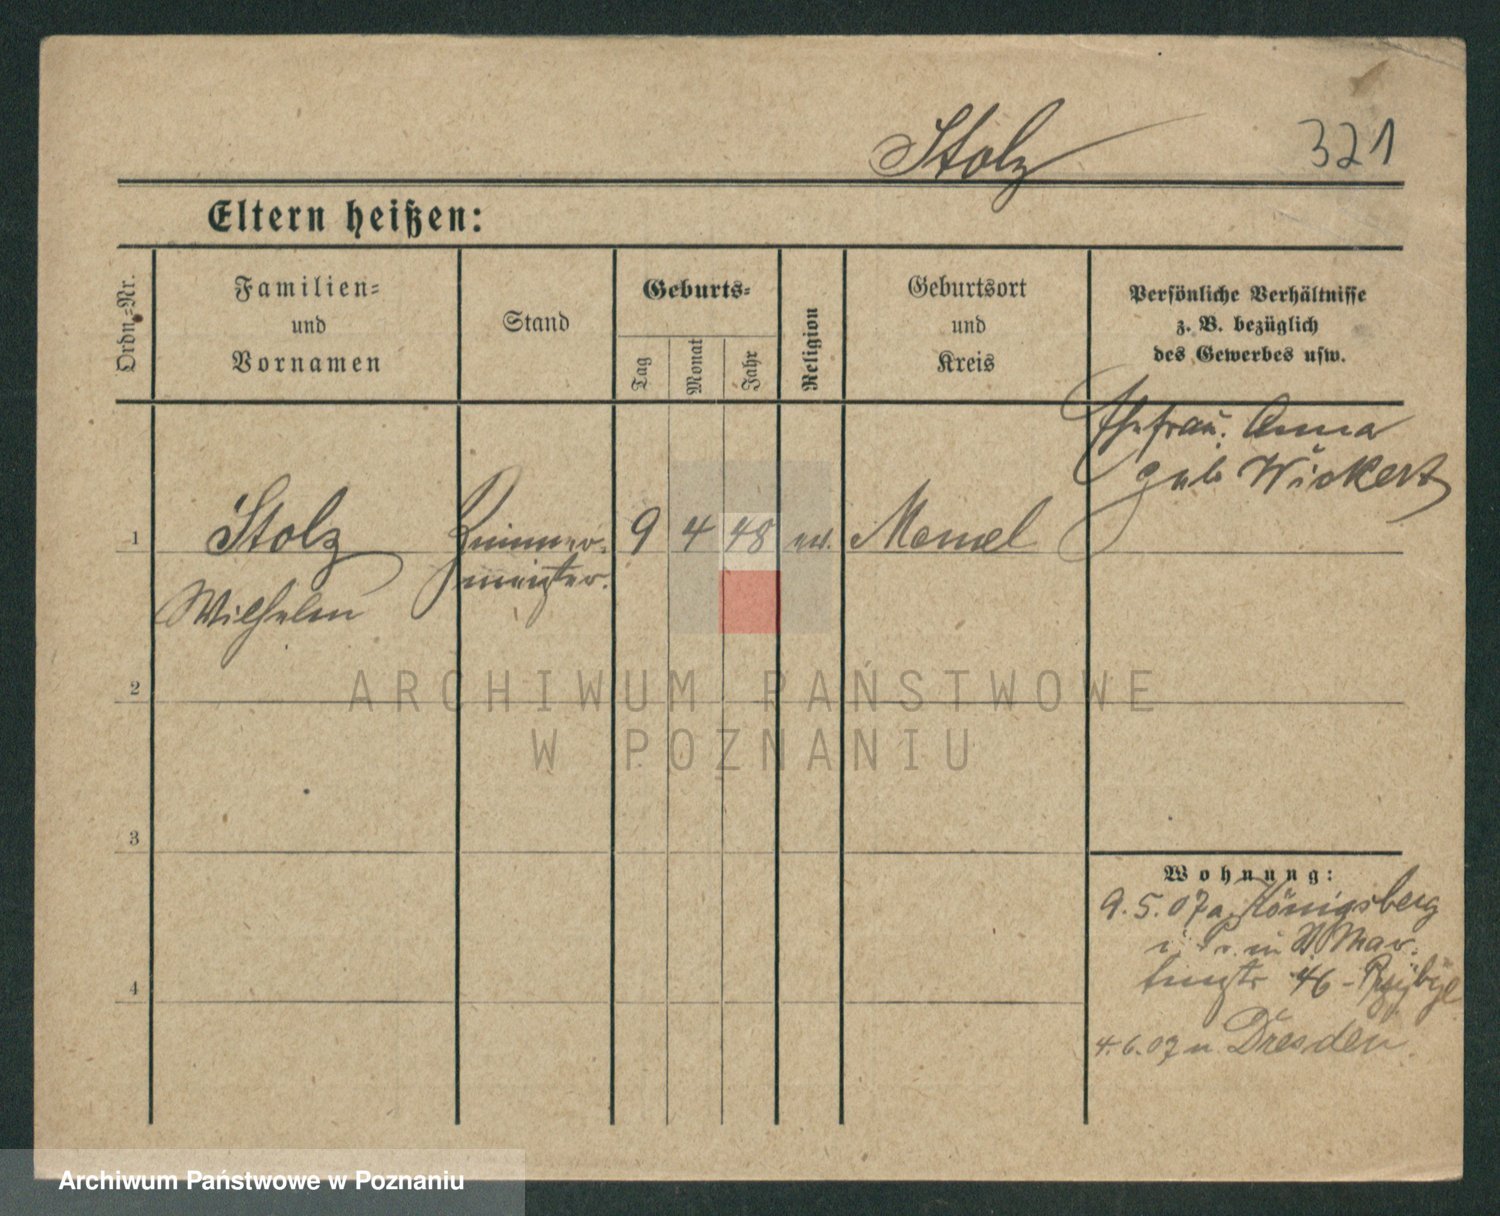 Stolz
321
Eltern heißen:
Ordn.-Nr.
Familien-
und
Vornamen
Stand
Geburts-
Tag
Monat
Jahr
Religion
Geburtsort
und
Kreis
Persönliche Verhältnisse
z. B. bezüglich
des Gewerbes usw.
Ehefrau: Anna
geb Wickert
1
Stolz
Wilhelm
Zimmer-
meister.
9
4
48
ev.
Memel
2
3
4
Wohnung:
9.5.07 a. Königsberg
i. Pr. in W Mar-
tinstr 46 - Przybyl
4.6.07 n. Dresden.
ARCHIWUM PAŃSTWOWE
W POZNANIU
Archiwum Państwowe w Poznaniu